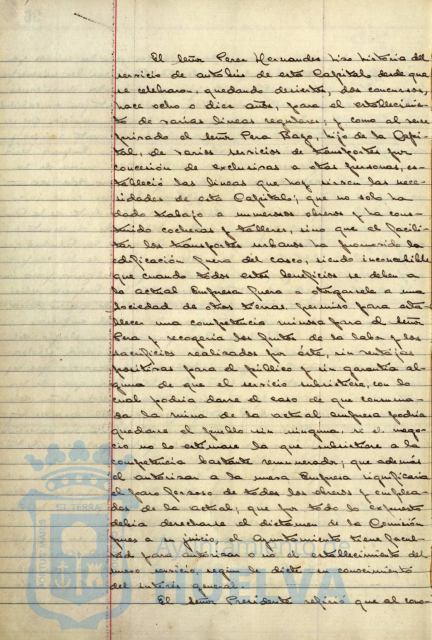 El Señor Perez Hernandez hizo historia del
servicio de autobús de esta Capital desde que
se celebraron, quedando desiertos, dos concursos,
hace ocho o diez años, para el establecimien
to de varias lineas regulares; y como al verse
privado el Señor Pera Bazo, hijo de la Capi
tal, de varios servicios de transportes por
concesión de exclusivas a otras personas, es
tableció las lineas que hoy sirven las nece
sidades de esta Capital; que no solo ha
dado trabajo a numerosos obreros y ha cons
truido cocheras y talleres, sino que al facili
tar los transportes urbanos ha promovido la
edificación fuera del casco, siendo inconcebible
que cuando todos estos beneficios se deben a
la actual Empresa fuera a otorgarsele a una
sociedad de otras tierras permiso para esta
blecer una competencia ruinosa para el Señor
Pera y recogeria los frutos de la labor y los
sacrificios realizados por éste, sin ventajas
positivas para el público y sin garantia al
guna de que el servicio subsistiera, con lo
cual podria darse el caso de que consuma
da la ruina de la actual empresa podria
quedarse el pueblo sin ninguna, si el nego
cio no lo estimara la que subsistiera a la
competencia bastante remunerador; que además
el autorizar a la nueva Empresa significaria
el paro forzoso de todos los obreros y emplea
dos de la actual; que por todo lo expuesto
debia desecharse el dictamen de la Comisión
pues a su juicio, el Ayuntamiento tiene facul
tad para autorizar o no el establecimiento del
nuevo servicio, según le dicte su conocimiento
del interés general.
El Señor Presidente refirió que al cono-
HUELVA